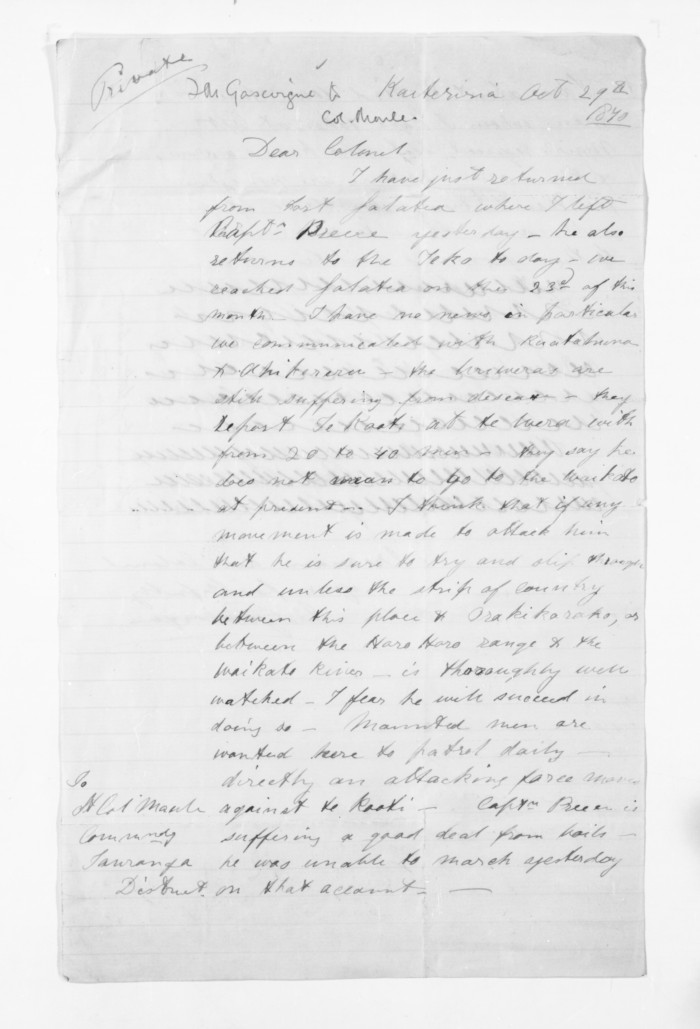 Private
F M Gascoigne to
Col. Moule.
Kaiteriria Oct 29th
1870
Dear Colonel
I have just returned
from Fort Galatea where I left
Captn Preece yesterday - he also
returns to the Teko to day - we
reached Galatea on the 23rd of this
month I have no news in particular
we communicated with Ruatahuna
& Ahikereru - the Ureweras are
still suffering from disease - they
report Te Kooti at te Wera with
from 20 to 40 men - they say he
does not mean to go to the Waikato
at present - I think that if any
movement is made to attack him
that he is sure to try and slip through
and unless the strip of country
between this place & Orakikorako, or
between the Horo Horo range & the
Waikato River - is thoroughly well
watched - I fear he will succeed in
doing so - Mounted men are
wanted here to patrol daily -
directly an attacking force moves
against te Kooti - Captn Preece is
suffering a good deal from boils -
he was unable to march yesterday
on that account -
To
Lt Col Moule
Commndg
Tauranga
District.